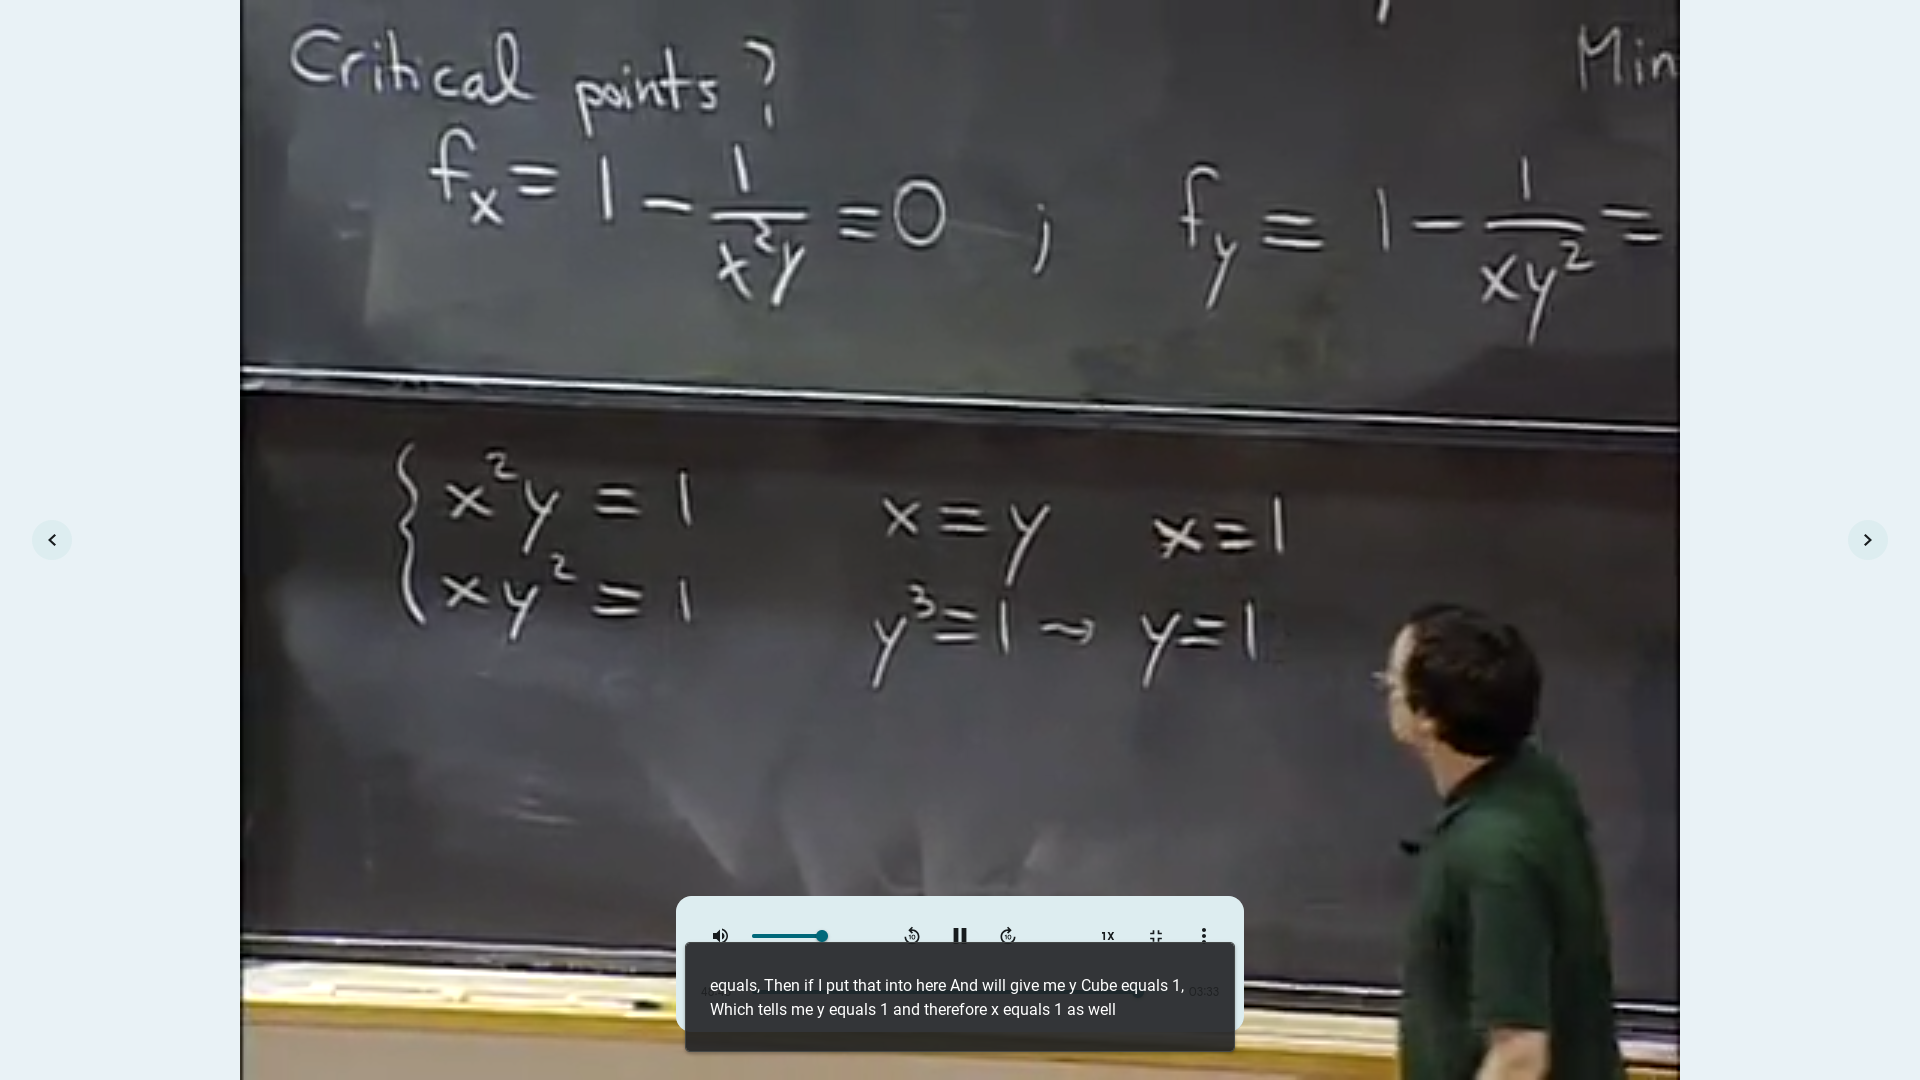 Critical points ?
Min
fx = 1 - 1/x²y = 0 ; fy = 1 - 1/xy² =
{ x²y = 1
xy² = 1
x = y x = 1
y³ = 1 → y = 1
1X
equals, Then if I put that into here And will give me y Cube equals 1,
Which tells me y equals 1 and therefore x equals 1 as well